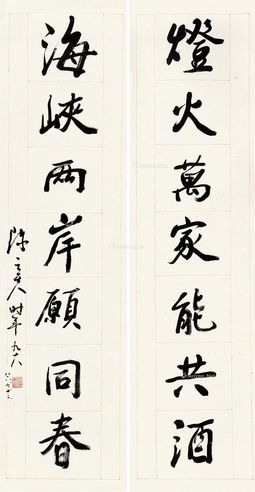 燈火萬家能共酒
海峽两岸願同春
時年九十八